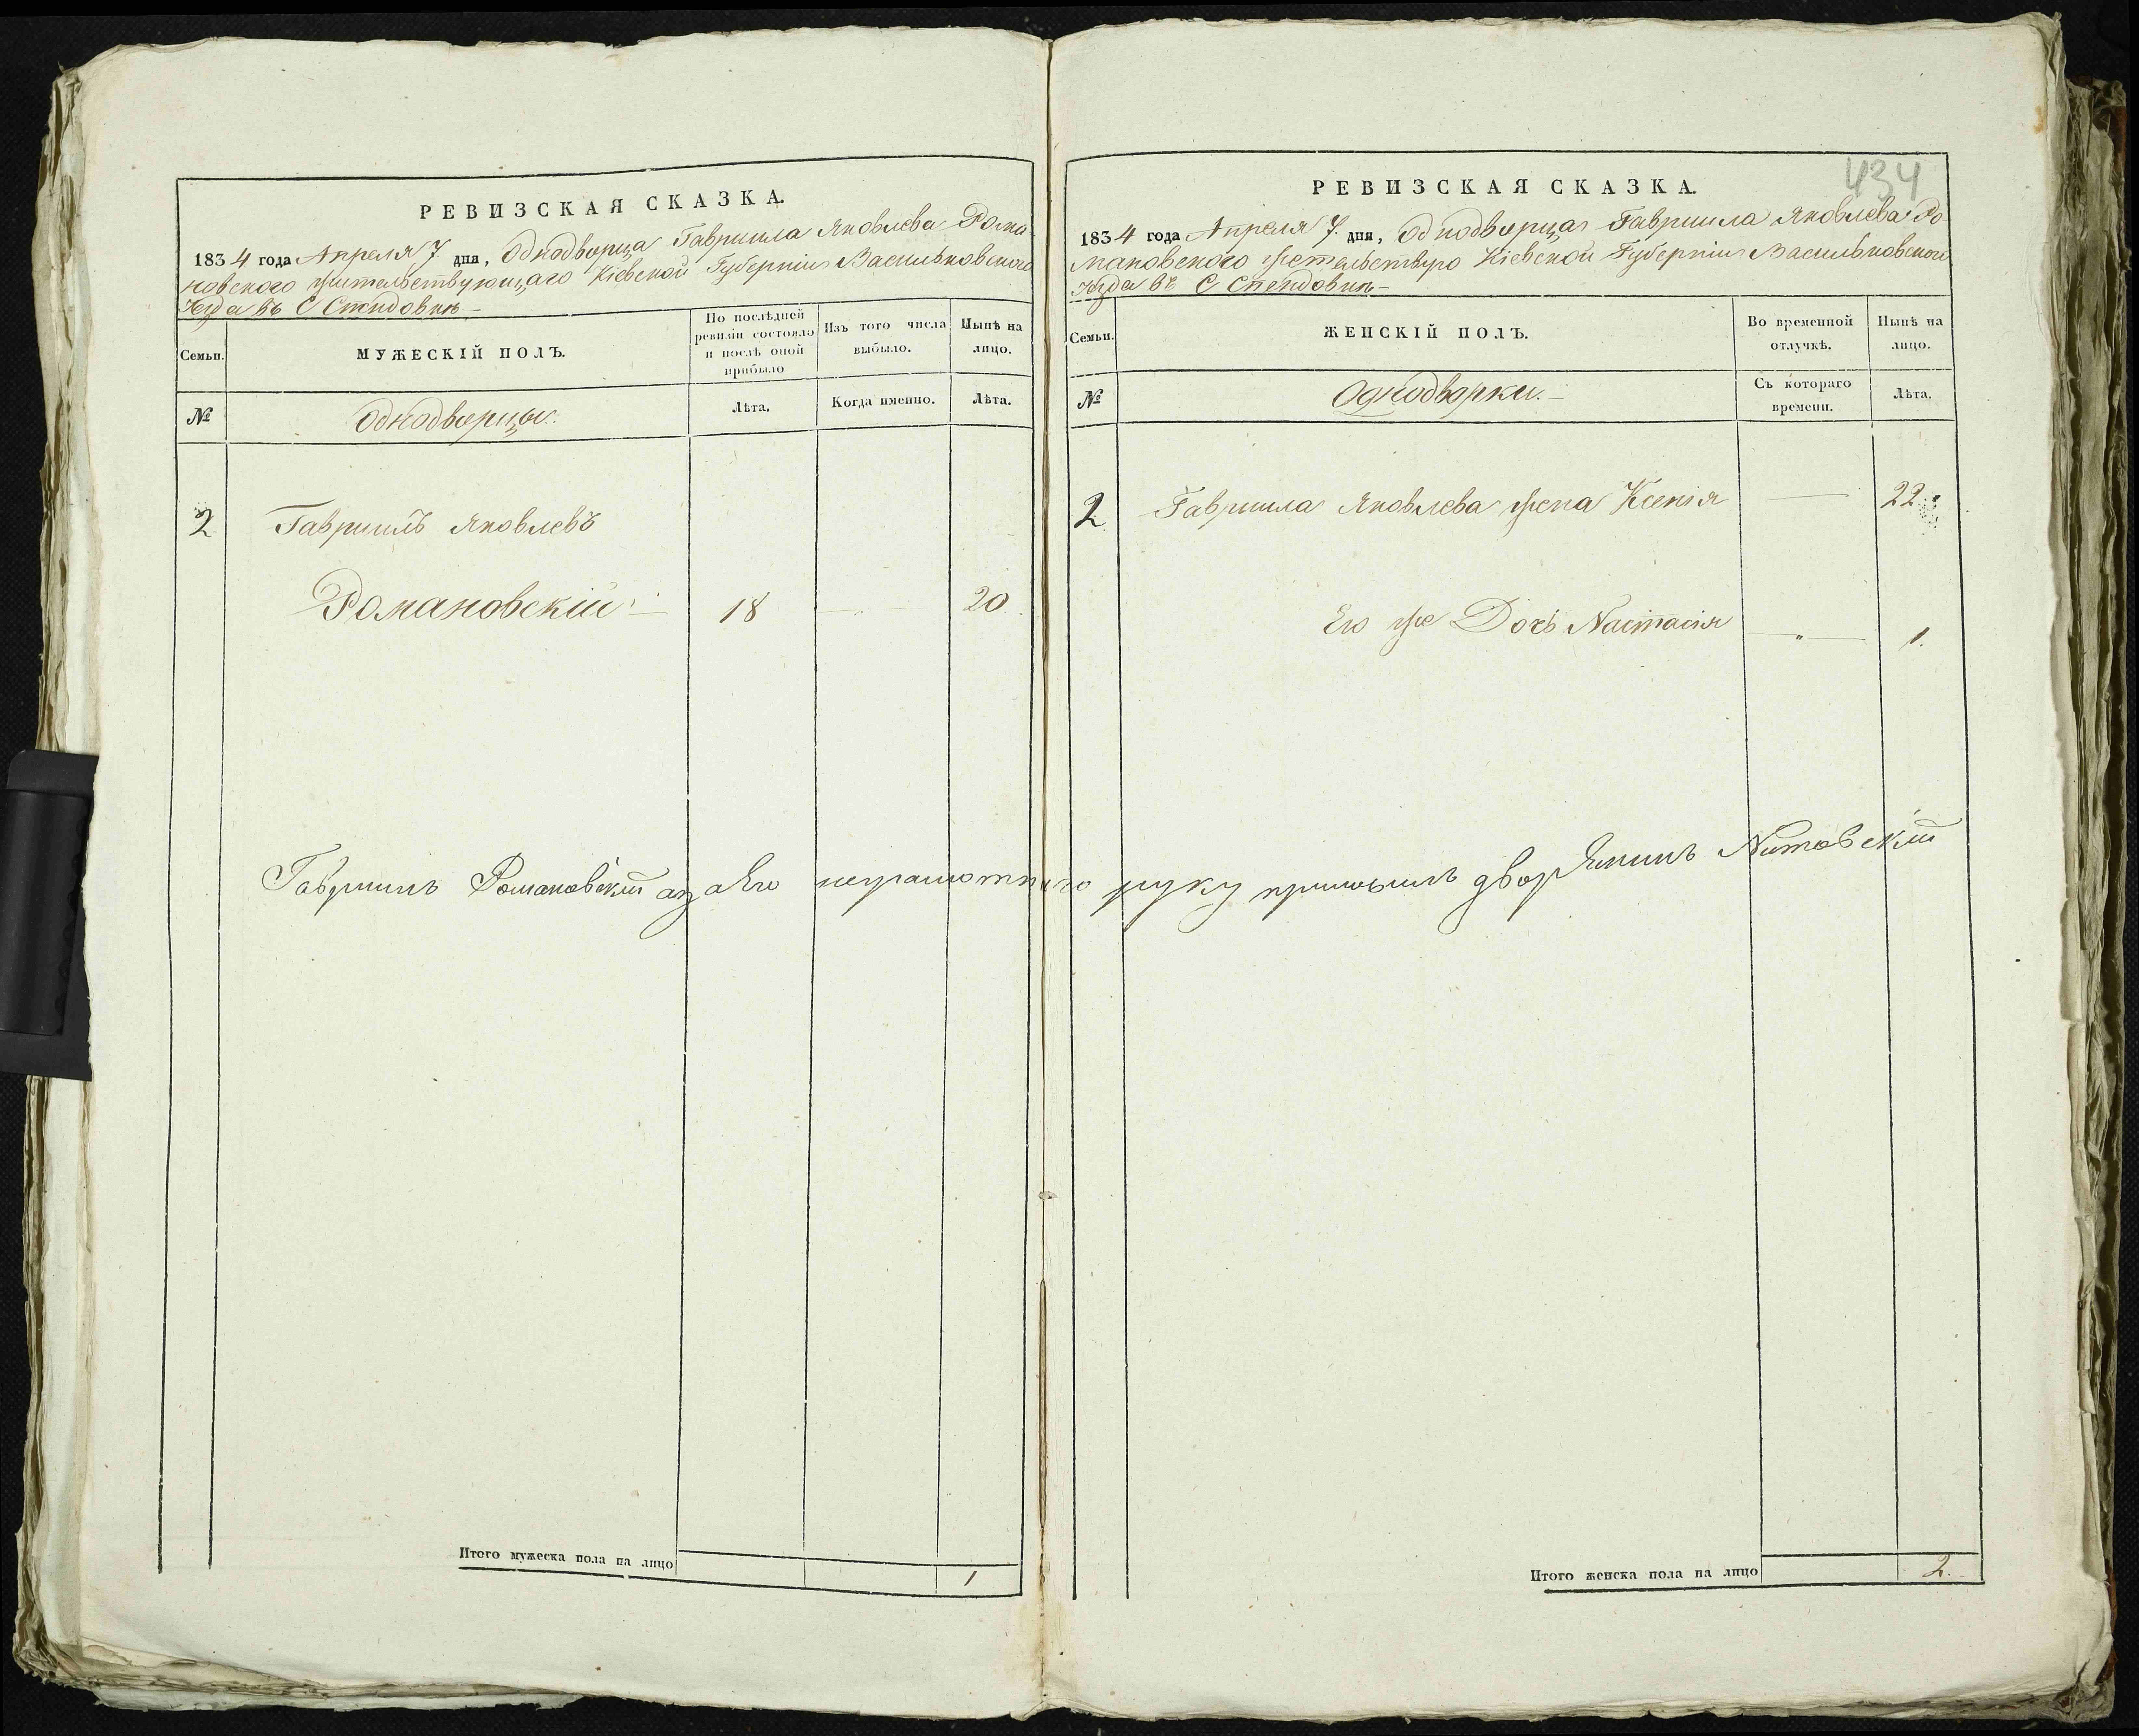 РЕВИЗСКАЯ СКАЗКА.
1834 года Апреля 7 дня, Однодворца Гавриила Яковлева Рома-
новского жительствующаго Кіевской Губерніи Васильковского
Уезда въ С
Семьи.
МУЖЕСКІЙ ПОЛЪ.
По послѣдней
ревизіи состояло
и послѣ оной
прибыло
Изъ того числа
выбыло.
Нынѣ на
лицо.
№
Однодворцы.
Лѣта.
Когда именно.
Лѣта.
2
Гавриилъ Яковлевъ
Романовскій
18
20
Итого мужеска пола на лицо
1
434
РЕВИЗСКАЯ СКАЗКА.
1834 года Апреля 7. дня, Однодворца Гавриила Яковлева Ро
мановского Кіевской Губерніи Васильковского
Уезда въ С
Семьи.
ЖЕНСКІЙ ПОЛЪ.
Во временной
отлучкѣ.
Нынѣ на
лицо.
№
Однодворки.
Съ котораго
времени.
Лѣта.
2
Гавриила Яковлева жена Ксенія
22
Его же Дочь Настасія
1.
Гавриилъ Романовскій а за Его неграмотного руку приложилъ дворянинъ
Итого женска пола на лицо
2.